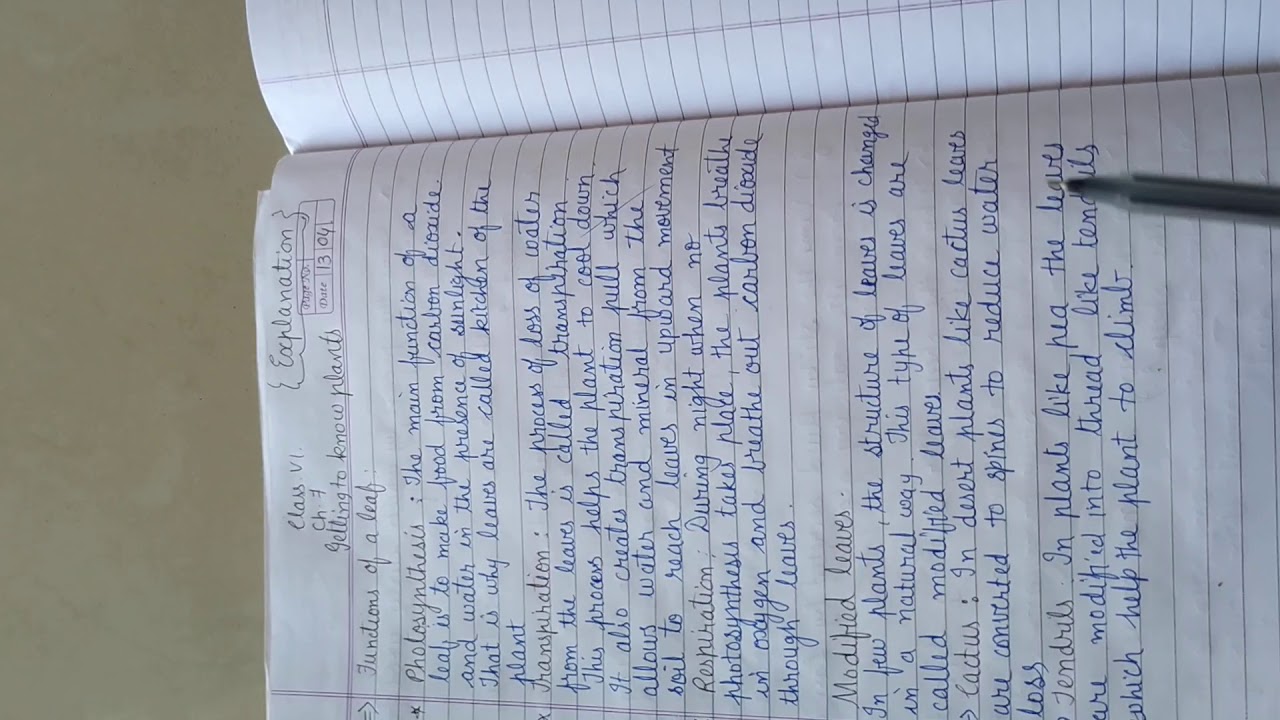 { Explanation }
Class. VI.
Ch. 7
Page No.
Date 13 04
Getting to know plants
⇒ Functions of a leaf:
* Photosynthesis : The main function of a
leaf is to make food from carbon dioxide
and water in the presence of sunlight.
That is why leaves are called kitchen of the
plant
* Transpiration : The process of loss of water
from the leaves is called transpiration
This process helps the plant to cool down.
It also creates transpiration pull which
allows water and mineral from the
soil to reach leaves in upward movement
Respiration: During night when no
photosynthesis takes place, the plants breathe
in oxygen and breathe out carbon dioxide
through leaves.
Modified leaves.
In few plants, the structure of leaves is changed
in a natural way. This type of leaves are
called modified leaves
⇒ Cactus : In desert plants like cactus leaves
are converted to spines to reduce water
loss
Tendrils: In plants like pea the leaves
are modified into thread like tendrils
which help the plant to climb.